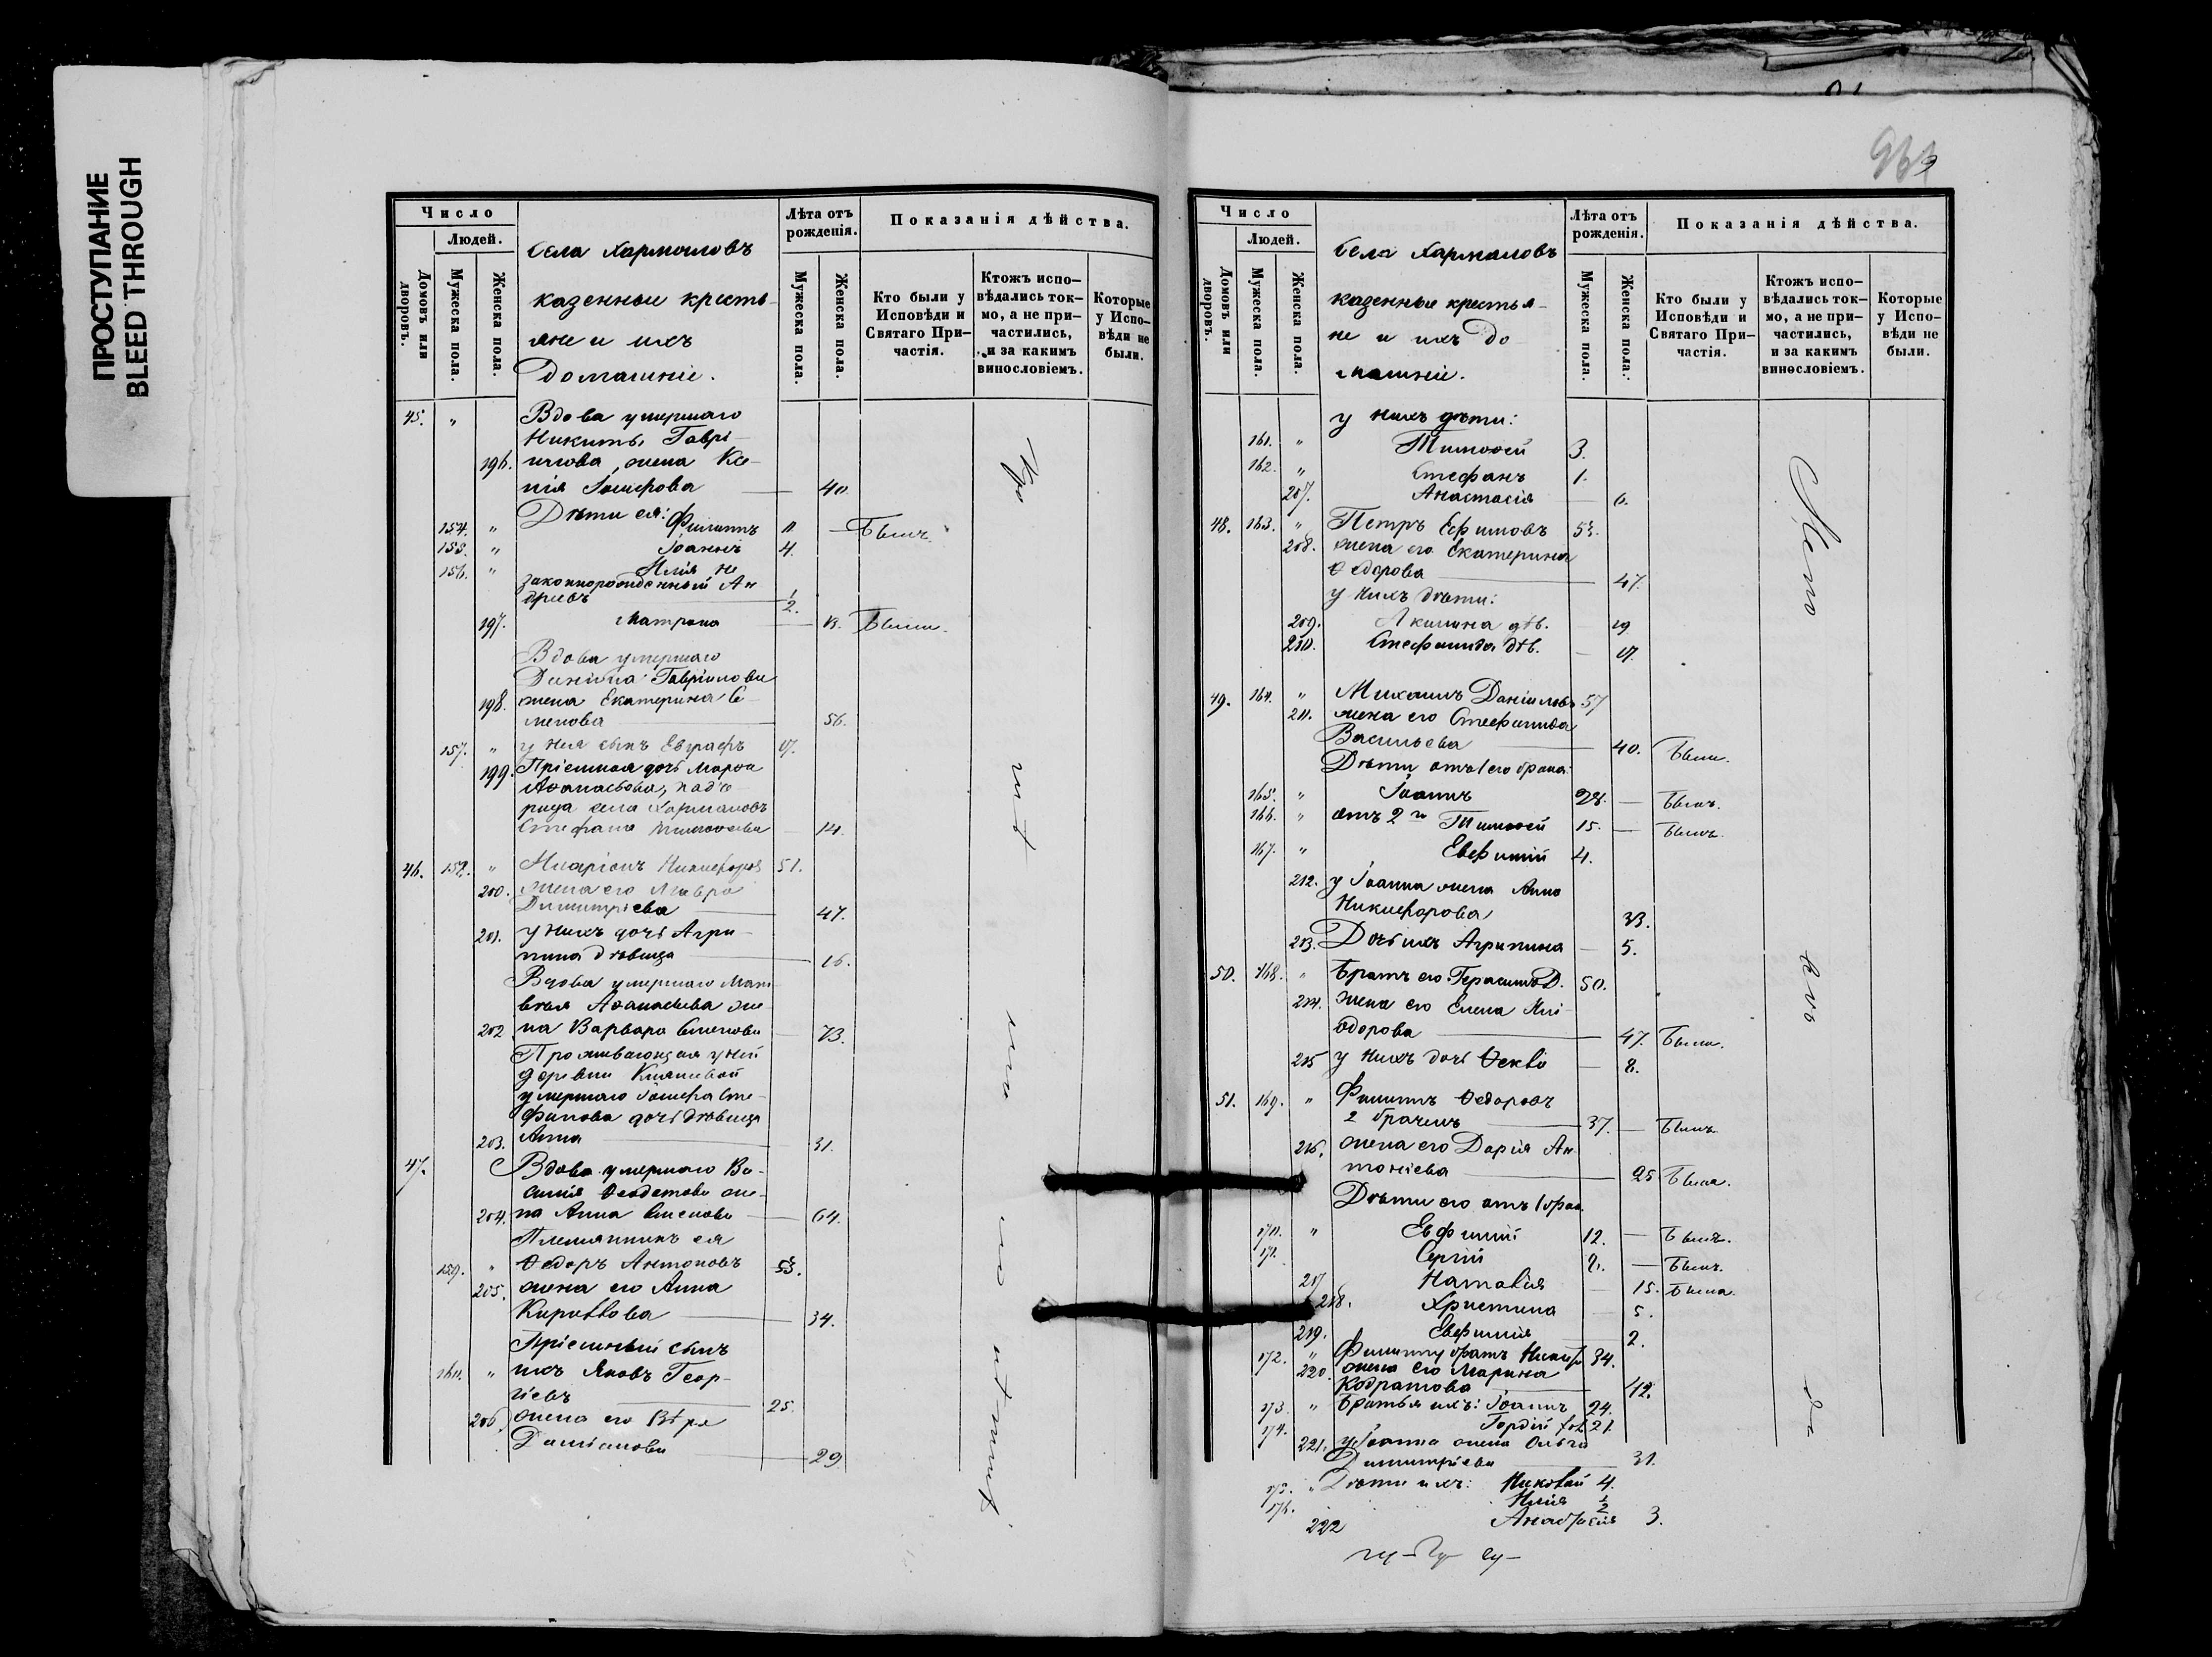 ПРОСТУПАНИЕ
BLEED THROUGH
Число
Людей.
Домовъ или дворовъ.
Мужеска пола.
Женска пола.
Села Хармаловъ
казенные кресть-
яне и ихъ
Домашніе.
Лѣта отъ рожденія.
Мужеска пола.
Женска пола.
Показанія дѣйства.
Кто были у Исповѣди и Святаго При-частія.
Ктожъ испо-вѣдались ток-мо, а не при-частились, и за какимъ винословіемъ.
Которые у Испо-вѣди не были.
45. " Вдова умершаго
Никиты Гаврі-
196. илова жена Ксе-
нія Іосифова 40
Дѣти ея:
154. " Филиппъ 11 — Былъ.
155. " Іоаннъ 4.
156. " Илія не
законнорожденный Ан
дреевъ 1/2.
197. Матрона Была.
Вдова умершаго
Даніила Гавріилова
198. жена Екатерина Се-
менова 56.
157. " у нея сынъ Евграфъ 17.
199. Пріемная дочь Марѳа
Аѳанасьева,
села Хармаловъ
Стефана Тимоѳеева 14.
46. 158. " Иларіонъ Никифоровъ 51.
200. жена его Мавра
Димитріева 47.
201. у нихъ дочь Агри-
пина дѣвица 16.
Вдова умершаго Мат-
вѣя Аѳанасьева же-
202. на Варвара Семенова 73.
Проживающая у ней
деревни
умершаго Іосифа Сте-
фанова дочь дѣвица
203. Анна 31.
47. Вдова умершаго Ва-
силія Ѳеодотова же-
204. на Анна Семенова 64.
Племянникъ ея
159. " Ѳедоръ Антоновъ 53.
205. жена его Анна
Кирилова 34.
Пріемный сынъ
160. " ихъ Яковъ Геор-
гіевъ 25.
206. жена его Вѣра
Даміанова 29
Число
Людей.
Домовъ или дворовъ.
Мужеска пола.
Женска пола.
Села Хармаловъ
казенные крестья-
не и ихъ до
машніе.
Лѣта отъ рожденія.
Мужеска пола.
Женска пола.
Показанія дѣйства.
Кто были у Исповѣди и Святаго При-частія.
Ктожъ испо-вѣдались ток-мо, а не при-частились, и за какимъ винословіемъ.
Которые у Испо-вѣди не были.
у нихъ дѣти:
161. " Тимоѳей 3.
162. " Стефанъ 1.
207. Анастасія 6.
48. 163. " Петръ Ефимовъ 53.
208. жена его Екатерина
Ѳедорова 47.
у нихъ дѣти:
209. Акилина дѣв. 19
210. Стефанида дѣв. 17.
49. 164. " Михаилъ Даніиловъ 57
211. жена его Стефанида
Васильева 40. Была.
Дѣти отъ 1 его брака:
165. " Іоаннъ 28. — Былъ.
166. " отъ 2 го Тимоѳей 15. — Былъ.
167. " Евфимій 4.
212. у Іоанна жена Анна
Никифорова 33.
213. Дочь ихъ Агрипина 5.
50. 168. " Братъ его Герасимъ Д. 50.
214. жена его Елена Илі-
одорова 47. Была.
215 у нихъ дочь Ѳекла 8.
51. 169. " Филиппъ Ѳедоровъ
2 бракомъ 37. — Былъ
216. жена его Дарія Ан
тоніева 25 Была.
Дѣти его отъ 1 брака
170. " Евфимій 12. — Былъ.
171. Сергій — Былъ.
217 Наталія 15. Была.
218. Христина 5.
219. Евфимія 2.
172. " Филиппу братъ 34.
220. жена его Марина
Кодратова 42.
173 " Братья ихъ: Іоаннъ 24.
174. Гордій 21.
221. у Іоанна жена Ольга
Димитріева 31.
175. " Дѣти ихъ: Николай 4.
176. Илія 1/2
222 Анастасія 3.